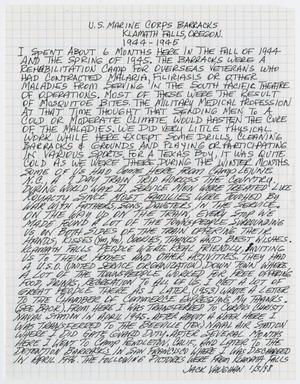 U.S. MARINE CORPS BARRACKS
KLAMATH FALLS, OREGON.
1944-1945
I SPENT ABOUT 6 MONTHS HERE IN THE FALL OF 1944
AND THE SPRING OF 1945. THE BARRACKS WERE A
REHABILITATION CAMP FOR OVERSEAS VETERANS WHO
HAD CONTRACTED MALARIA, FILIRIASIS OR OTHER
MALADIES FROM SERVING IN THE SOUTH PACIFIC THEATRE
OF OPERATIONS. MOST OF THESE WERE THE RESULT
OF MOSQUITOE BITES. THE MILITARY MEDICAL PROFESSION
AT THAT TIME THOUGHT THAT SENDING MEN TO A
COLD OR MODERATE CLIMATE WOULD HASTEN THE CURE
OF THE MALADIES. WE DID VERY LITTLE PHYSICAL
WORK WHILE HERE EXCEPT SOME DRILLS, CLEANING
BARRACKS & GROUNDS AND PLAYING OR PARTICIPATING
IN VARIOUS SPORTS. FOR A TEXAS BOY, IT WAS QUITE
COLD AS WE WORST THERE DURING THE WINTER MONTHS.
SOME OF US HAD COME HERE FROM CAMP LEJUNE
N.C. A DAY TRAIN TRIP ACROSS THE COUNTRY.
DURING WORLD WAR II, SERVICE MEN WERE TREATED LIKE
ROYALTY SINCE MOST FAMILIES WERE TOUCHED BY
WAR WITH FATHERS, SONS, DAUGHTERS IN THE SERVICE.
ON THE WAY UP ON THE TRAIN, EVERY STOP WE
MADE FOUND A LOT OF THE TOWNSPEOPLE SURROUNDING
US ON BOTH SIDES OF THE TRAIN OFFERING THEIR
HANDS, KISSES, COOKIES, THANKS AND BEST WISHES.
KLAMATH FALLS PEOPLE WERE REAL FRIENDLY, INVITING
US TO THEIR HOMES AND OTHER ACTIVITIES. THEY HAD
A U.S.O. (UNITED SERVICE ORGANIZATION) DOWN TOWN WHERE
A LOT OF THE TOWNSPEOPLE WORKED FOR FREE OFFERING
FOOD, DRINKS, RECREATION TO ALL OF US. I MET A LOT OF
FAMILIES THERE AS I LATER (1985) WROTE A LETTER
TO THE CHAMBER OF COMMERCE EXPRESSING MY THANKS.
(SEE BACK). FROM HERE I WAS TRANSFERED TO CORPUS CHRISTI
NAVAL STATION IN APRIL 1945. AFTER ABOUT A WEEK HERE I
WAS TRANSFERRED TO THE BEEVILLE (TEX) NAVAL AIR STATION
WHERE I DID GATE GUARD. AFTER SEVERAL MONTHS
HERE I WENT TO CAMP PENDLETON, CALIF. AND LATER TO THE
DETENTION BARRACKS IN SAN FRANCISCO WHERE I WAS DISCHARGED
IN APRIL 1946. THE FOLLOWING PICTURES WERE FROM KLAMATH FALLS
JACK VAUGHAN 1/31/98